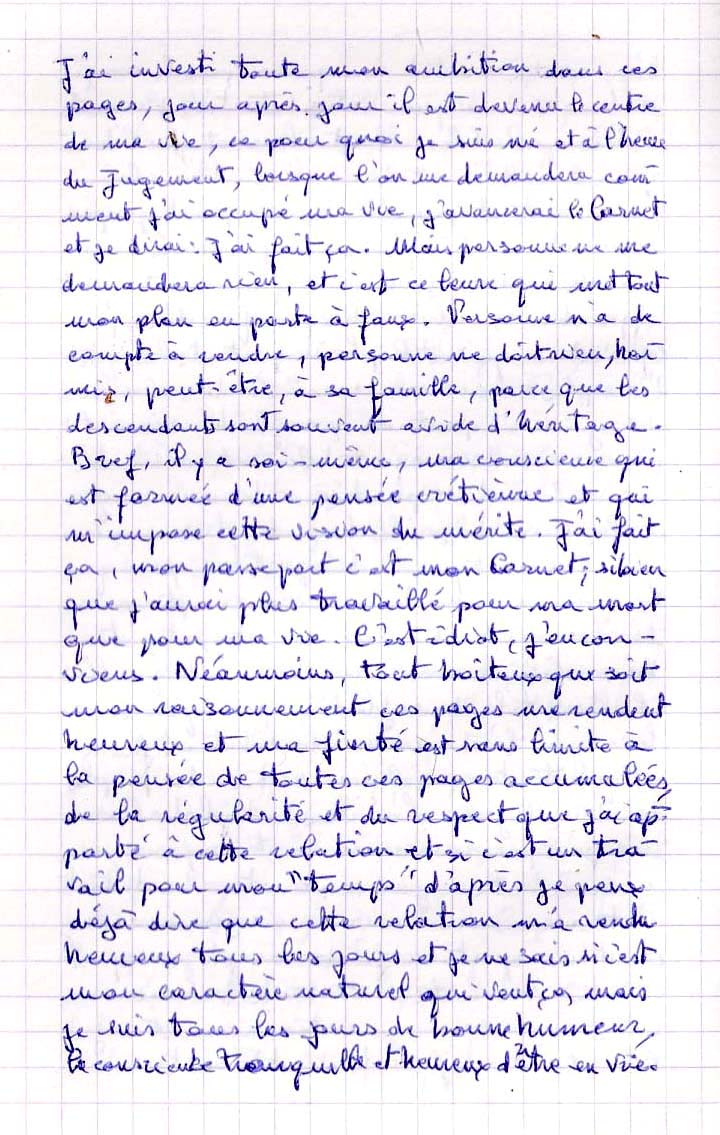 J'ai investi toute mon ambition dans ces
pages, jour après jour il est devenu le centre
de ma vie, ce pour quoi je suis né et à l'heure
du Jugement, lorsque l'on me demandera com
ment j'ai occupé ma vie, j'avancerai le Carnet
et je dirai : J'ai fait ça. Mais personne ne me
demandera rien, et c'est ce leure qui met tout
mon plan en porte à faux. Personne n'a de
compte à rendre, personne ne doit rien, hor
mis, peut-être, à sa famille, parce que les
descendants sont souvent avide d'héritage.
Bref, il y a soi-même, ma conscience qui
est formée d'une pensée crétienne et qui
m'impose cette vision du mérite. J'ai fait
ça, mon passeport c'est mon Carnet ; si bien
que j'aurai plus travaillé pour ma mort
que pour ma vie. C'est idiot, j'en con-
viens. Néanmoins, tout boiteux que soit
mon raisonnement ces pages me rendent
heureux et ma fierté est sans limite à
la pensée de toutes ces pages accumulées,
de la régularité et du respect que j'ai ap-
porté à cette relation et si c'est un tra
vail pour mon "temps" d'après je peux
déjà dire que cette relation m'a rendu
heureux tous les jours et je ne sais si c'est
mon caractère naturel qui veut ça, mais
je suis tous les jours de bonne humeur,
la conscience tranquille et heureux d'être en vie.